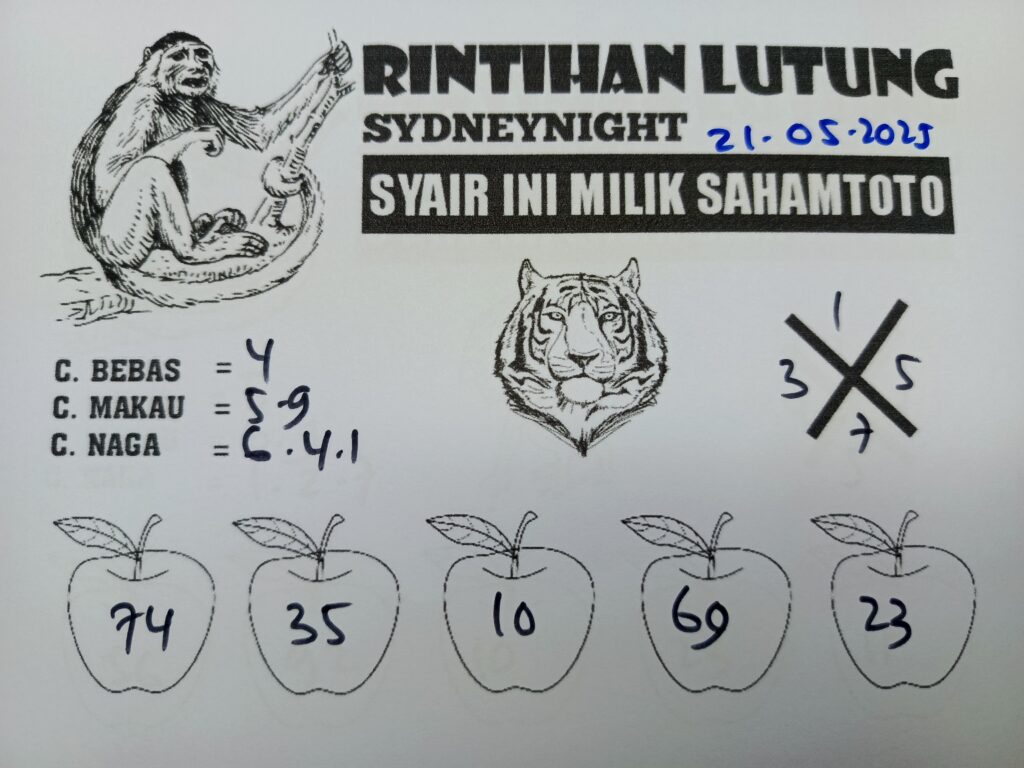 RINTIHAN LUTUNG
SYDNEYNIGHT 21.05.2025
SYAIR INI MILIK SAHAMTOTO
C. BEBAS = 4
C. MAKAU = 5.9
C. NAGA = 6.4.1
1
3 5
7
74 35 10 69 23